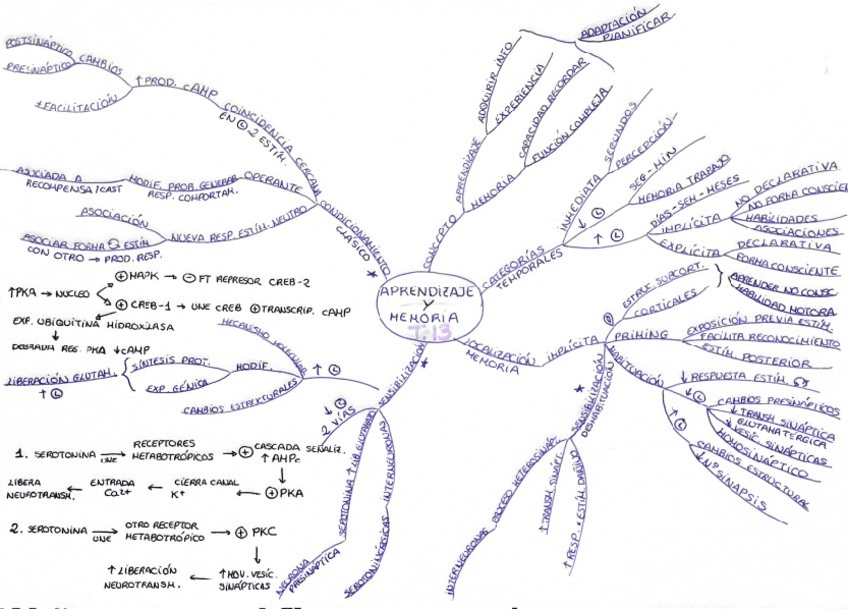 APRENDIZAJE
Y
MEMORIA
T.13
CONCEPTO
APRENDIZAJE
ADQUIRIR INFO
EXPERIENCIA
ADAPTACIÓN
PLANIFICAR
MEMORIA
CAPACIDAD RECORDAR
FUNCIÓN COMPLEJA
CATEGORÍAS
TEMPORALES
INMEDIATA
SEGUNDOS
PERCEPCIÓN
↓ Ⓛ
SEG-MIN
MEMORIA TRABAJO
↑ Ⓛ
DÍAS-SEM-MESES
IMPLÍCITA
NO DECLARATIVA
NO FORMA CONSCIEN
HABILIDADES
ASOCIACIONES
EXPLÍCITA
DECLARATIVA
FORMA CONSCIENTE
LOCALIZACIÓN
MEMORIA
IMPLÍCITA
ESTRUC SUBCORT.
CORTICALES
APRENDER NO CONSC.
HABILIDAD MOTORA
PRIMING
EXPOSICIÓN PREVIA ESTÍM.
FACILITA RECONOCIMIENTO
ESTÍM. POSTERIOR
HABITUACIÓN
↓ RESPUESTA ESTÍM.
↓ Ⓛ
CAMBIOS PRESINÁPTICOS
↓ TRANSM SINÁPTICA
GLUTAMATÉRGICA
↓ VESIC. SINÁPTICAS
HOMOSINÁPTICO
↑ Ⓛ
CAMBIOS ESTRUCTURAL
↓ Nº SINAPSIS
* SENSIBILIZACIÓN
DESHABITUACIÓN
PROCESO HETEROSINÁP.
INTERNEURONAS
↑ TRANSM SINÁPT.
↑ RESP. ESTÍM. DAÑINO
SENSIBILIZACIÓN *
↑ Ⓛ
MECANISMO MOLECULAR
MODIF.
SÍNTESIS PROT.
EXP. GÉNICA
LIBERACIÓN GLUTAM.
↑ Ⓛ
CAMBIOS ESTRUCTURALES
↓ Ⓛ
2 VÍAS
SEROTONINA ↑ LIB. GLUTAMATO
NEURONA
PRESINÁPTICA
INTERNEURONAS
SEROTONINÉRGICAS
CONDICIONAMIENTO
CLÁSICO *
COINCIDENCIA CERCANA
EN Ⓛ 2 ESTIM.
↑ PROD. cAMP
CAMBIOS
POSTSINÁPTICO
PRESINÁPTICO
+ FACILITACIÓN
OPERANTE
MODIF. PROB. GENERAR
RESP. COMPORTAM.
ASOCIADA A
RECOMPENSA/CAST
NUEVA RESP. ESTÍM. NEUTRO
ASOCIACIÓN
ASOCIAR FORMA ESTÍM
CON OTRO → PROD. RESP.
↑PKA → NUCLEO
⊕ MAPK → ⊖ FT REPRESOR CREB-2
⊕ CREB-1 → UNE CREB ⊕ TRANSCRIP. cAMP
EXP. UBIQUITINA HIDROXILASA
DEGRADA REG. PKA ↓cAMP
1. SEROTONINA → UNE RECEPTORES METABOTRÓPICOS → ⊕ CASCADA SEÑALIZ. ↑ AMPc
↓
LIBERA NEUROTRANSM. ← ENTRADA Ca2+ ← CIERRA CANAL K+ ← ⊕ PKA
2. SEROTONINA → UNE OTRO RECEPTOR METABOTRÓPICO → ⊕ PKC
↓
↑ LIBERACIÓN NEUROTRANSM. ← ↑ MOV. VESIC. SINÁPTICAS